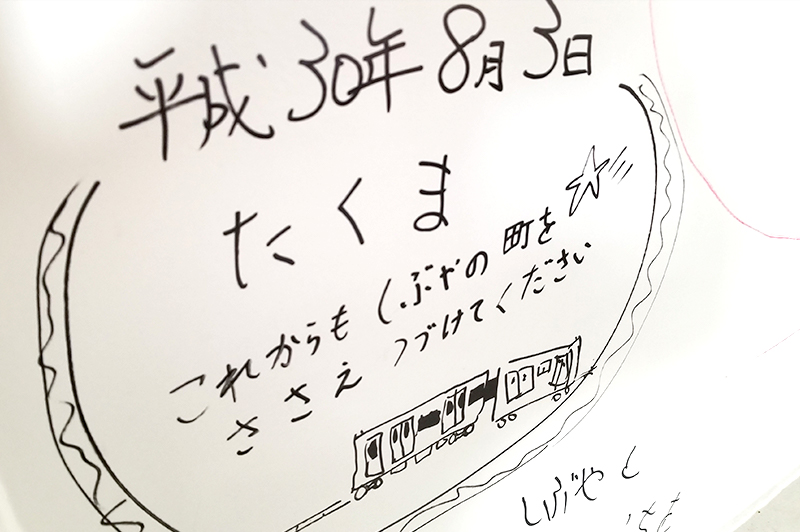 平成30年8月3日
たくま
これからもしぶやの町を
ささえつづけてください
しぶやと